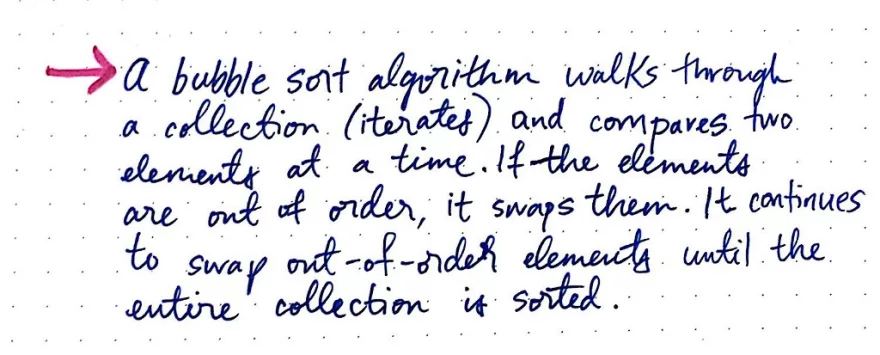 → a bubble sort algorithm walks through
a collection (iterates) and compares two
elements at a time. If the elements
are out of order, it swaps them. It continues
to swap out-of-order elements until the
entire collection is sorted.